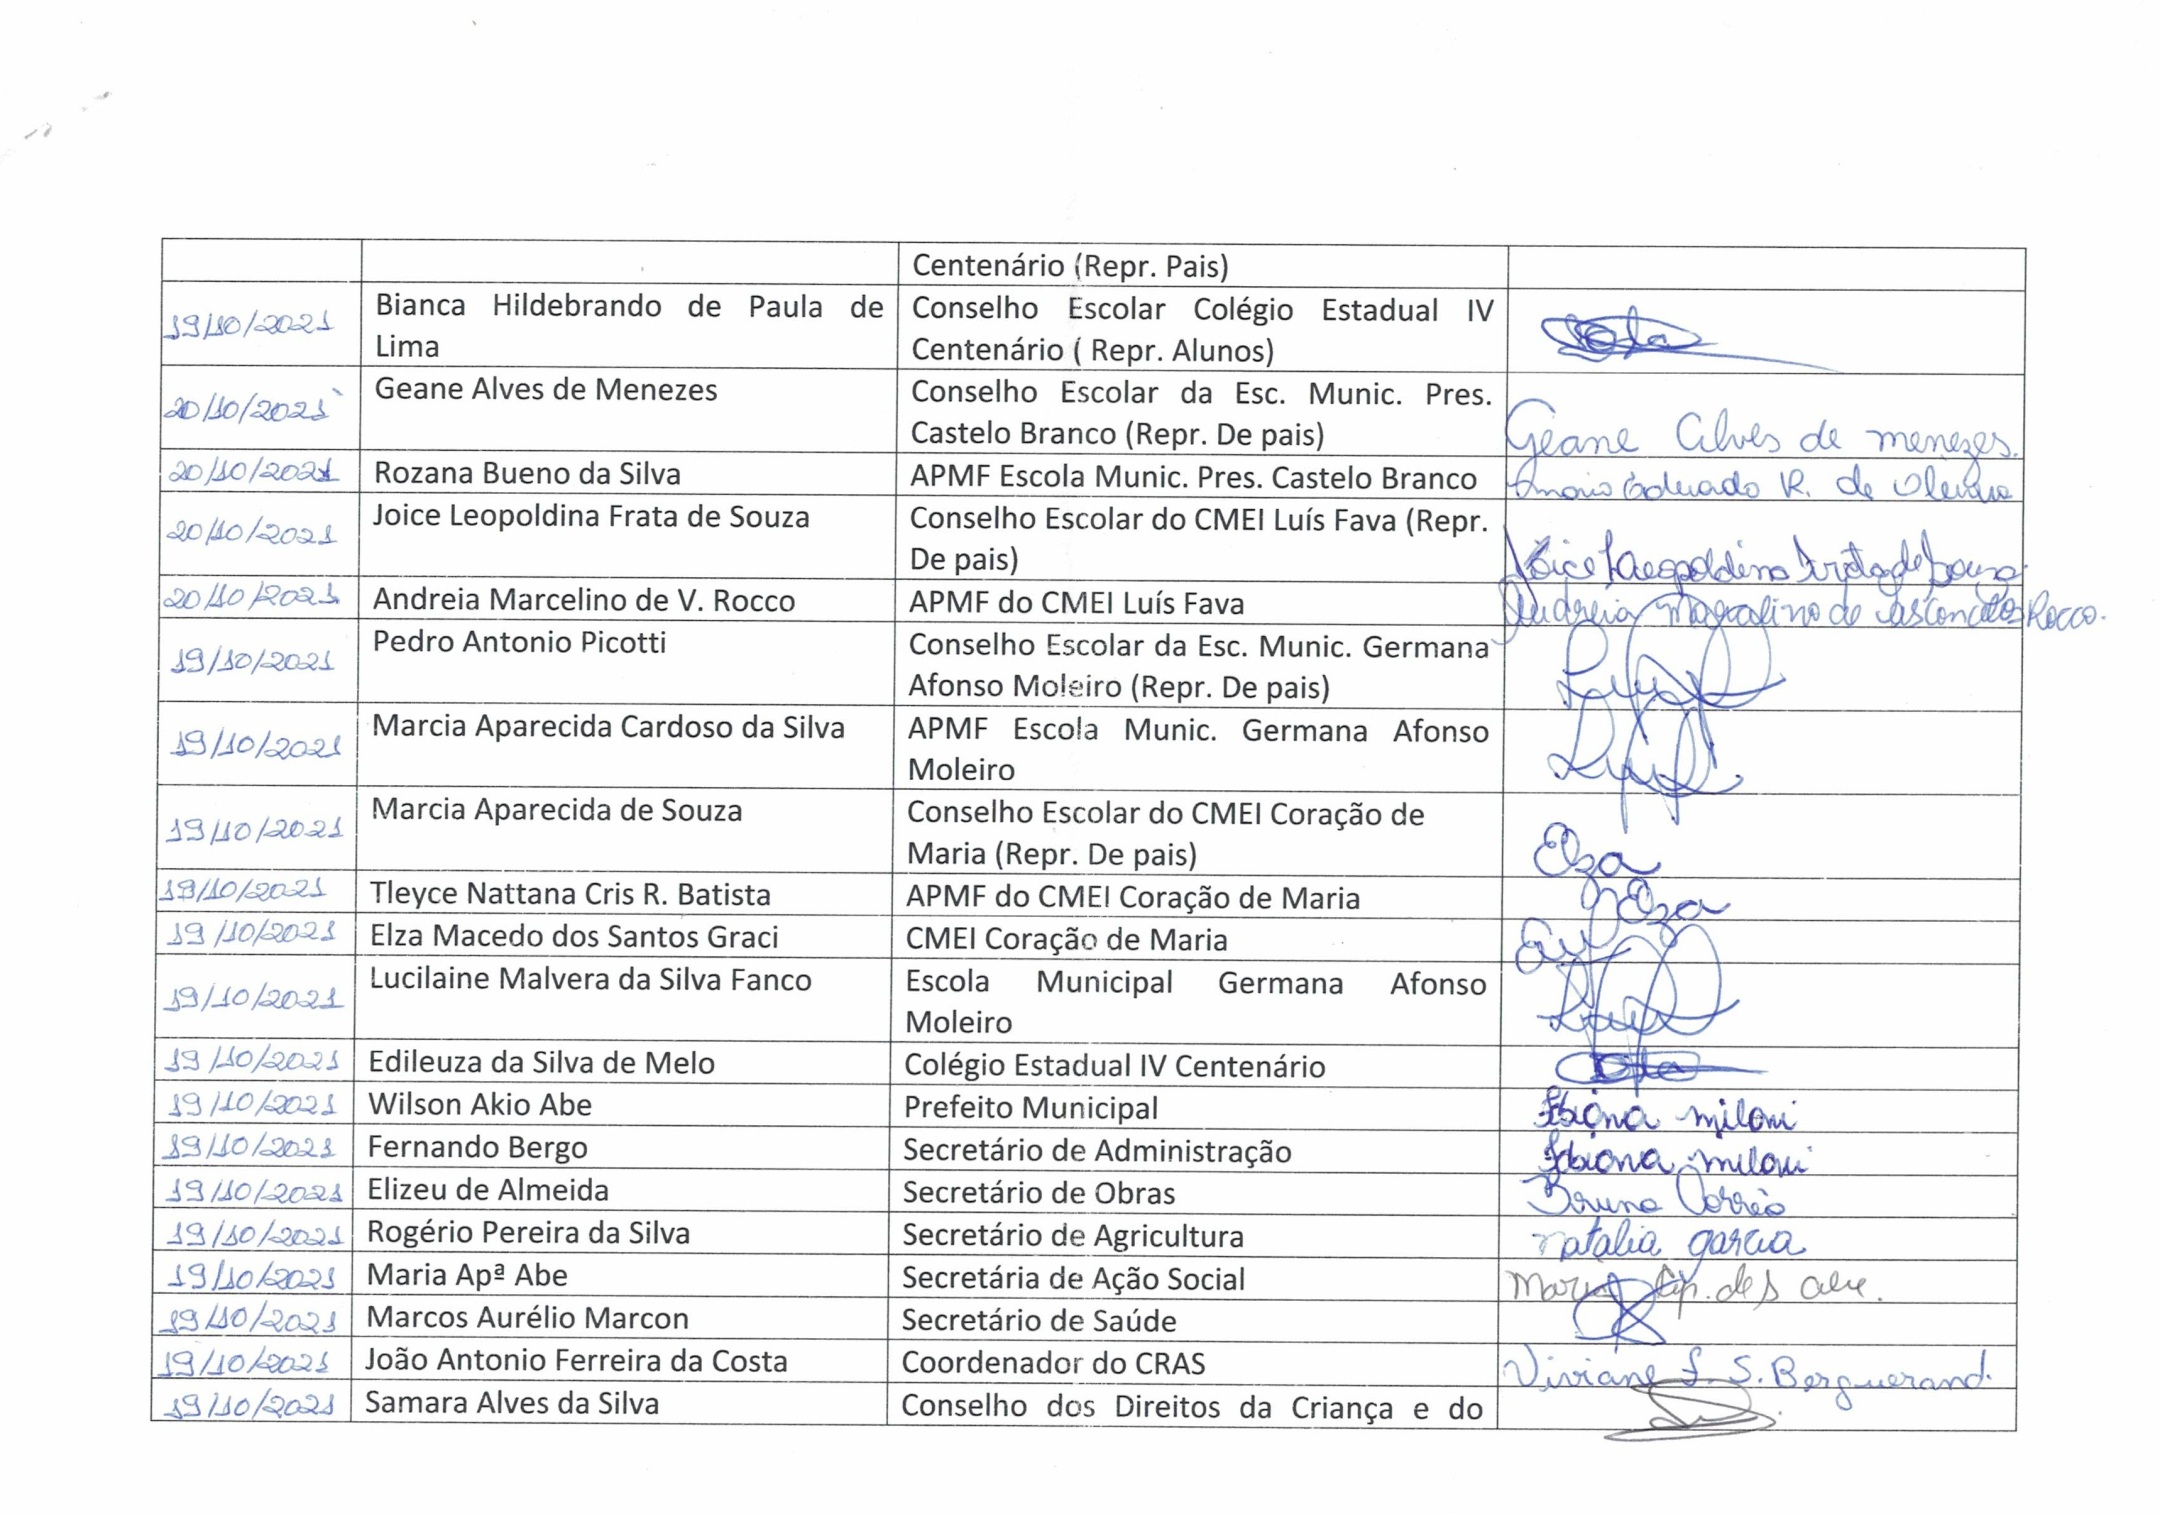 Centenário (Repr. Pais)
19/10/2021 Bianca Hildebrando de Paula de Conselho Escolar Colégio Estadual IV
Lima Centenário ( Repr. Alunos)
20/10/2021 Geane Alves de Menezes Conselho Escolar da Esc. Munic. Pres.
Castelo Branco (Repr. De pais) Geane Alves de menezes.
20/10/2021 Rozana Bueno da Silva APMF Escola Munic. Pres. Castelo Branco Eduardo R. de
20/10/2021 Joice Leopoldina Frata de Souza Conselho Escolar do CMEI Luís Fava (Repr.
De pais) Joice Leopoldina Frata de Souza
20/10/2021 Andreia Marcelino de V. Rocco APMF do CMEI Luís Fava Andreia Marcelino de Vasconcelos Rocco.
19/10/2021 Pedro Antonio Picotti Conselho Escolar da Esc. Munic. Germana
Afonso Moleiro (Repr. De pais)
19/10/2021 Marcia Aparecida Cardoso da Silva APMF Escola Munic. Germana Afonso
Moleiro
19/10/2021 Marcia Aparecida de Souza Conselho Escolar do CMEI Coração de
Maria (Repr. De pais) Elza
19/10/2021 Tleyce Nattana Cris R. Batista APMF do CMEI Coração de Maria Elza
19/10/2021 Elza Macedo dos Santos Graci CMEI Coração de Maria
19/10/2021 Lucilaine Malvera da Silva Fanco Escola Municipal Germana Afonso
Moleiro
19/10/2021 Edileuza da Silva de Melo Colégio Estadual IV Centenário
19/10/2021 Wilson Akio Abe Prefeito Municipal miloni
19/10/2021 Fernando Bergo Secretário de Administração miloni
19/10/2021 Elizeu de Almeida Secretário de Obras Bruno
19/10/2021 Rogério Pereira da Silva Secretário de Agricultura natalia garcia
19/10/2021 Maria Apª Abe Secretária de Ação Social Maria Ap. des
19/10/2021 Marcos Aurélio Marcon Secretário de Saúde
19/10/2021 João Antonio Ferreira da Costa Coordenador do CRAS Viviane F. S. Berguerand.
19/10/2021 Samara Alves da Silva Conselho dos Direitos da Criança e do